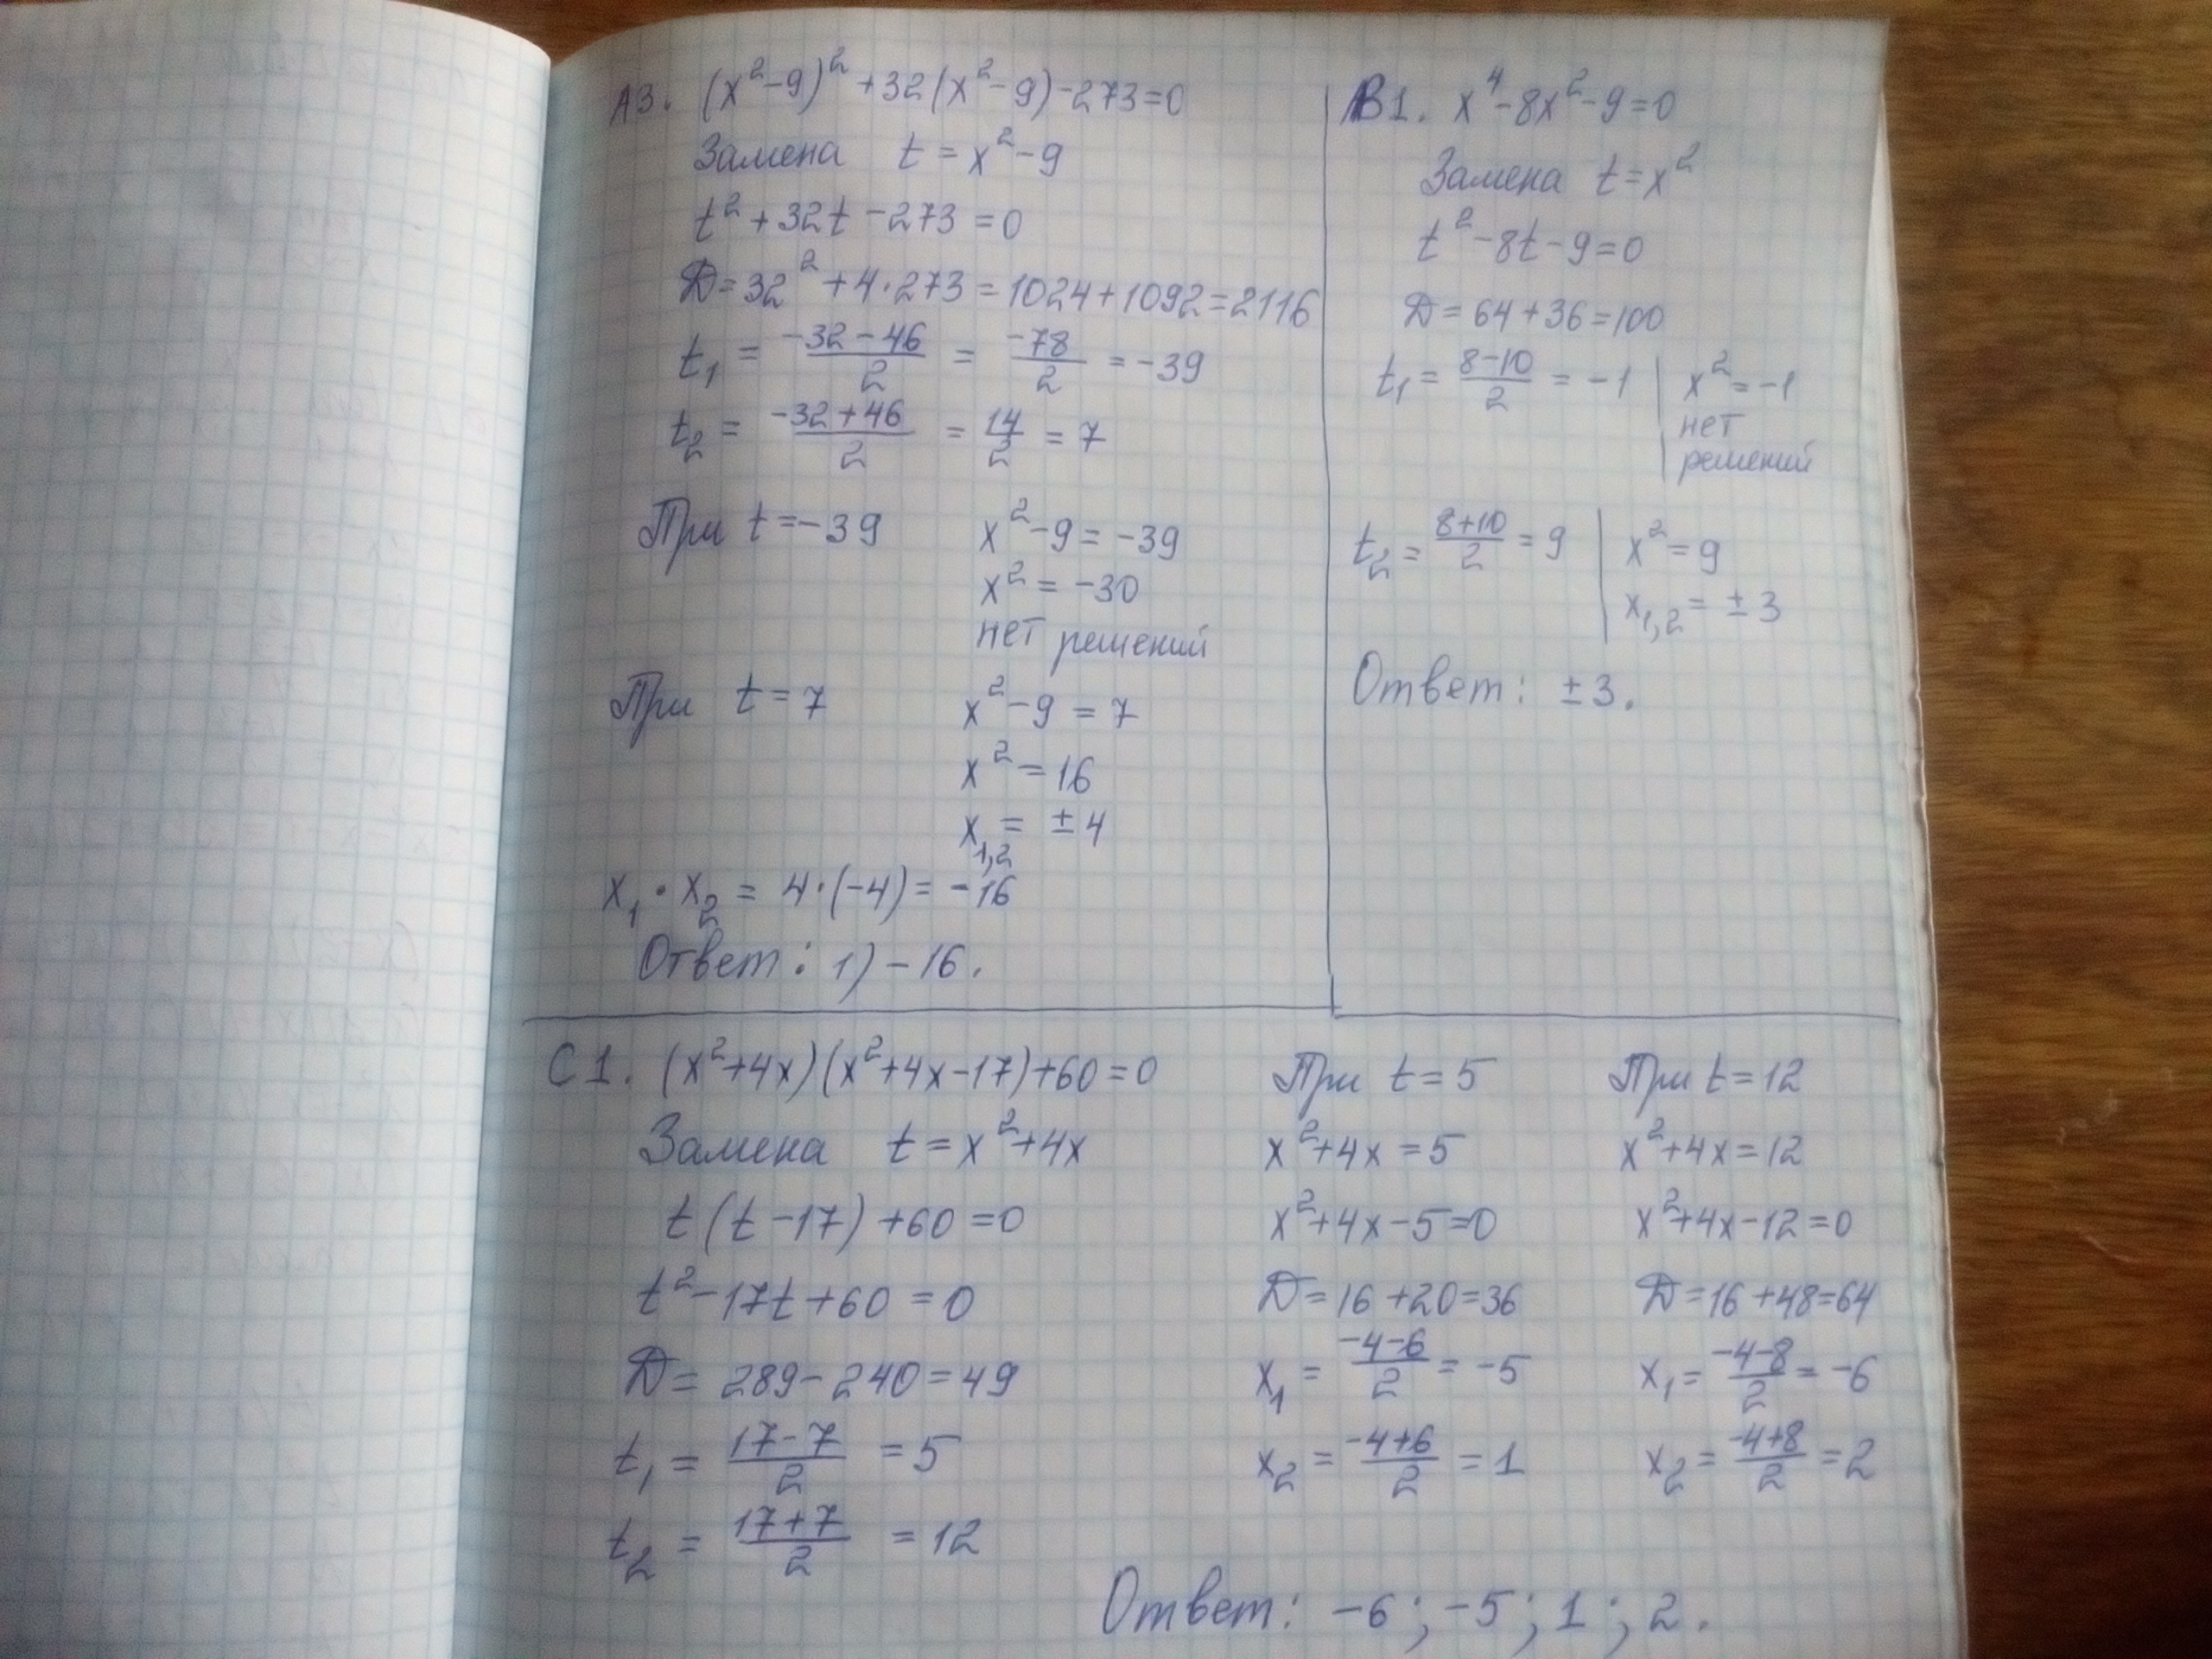 А3. (x²-9)² +32(x²-9)-273=0
Замена t = x²-9
t² + 32t - 273 = 0
D = 32² + 4·273 = 1024+1092=2116
t₁ = (-32-46)/2 = -78/2 = -39
t₂ = (-32+46)/2 = 14/2 = 7
При t=-39 x²-9= -39
x² = -30
нет решений
При t = 7 x²-9 = 7
x² = 16
x₁,₂ = ±4
x₁·x₂ = 4·(-4)= -16
Ответ: 1) -16.
В1. x⁴-8x²-9=0
Замена t=x²
t²-8t-9=0
D = 64+36=100
t₁ = (8-10)/2 = -1 | x² = -1
нет
решений
t₂ = (8+10)/2 = 9 | x² = 9
x₁,₂ = ±3
Ответ: ±3.
С1. (x²+4x)(x²+4x-17)+60=0
Замена t = x²+4x
t(t-17)+60=0
t²-17t+60=0
D= 289-240=49
t₁ = (17-7)/2 = 5
t₂ = (17+7)/2 = 12
При t=5
x²+4x=5
x²+4x-5=0
D=16+20=36
x₁ = (-4-6)/2 = -5
x₂ = (-4+6)/2 = 1
При t=12
x²+4x=12
x²+4x-12=0
D=16+48=64
x₁= (-4-8)/2 = -6
x₂ = (-4+8)/2 = 2
Ответ: -6; -5; 1; 2.